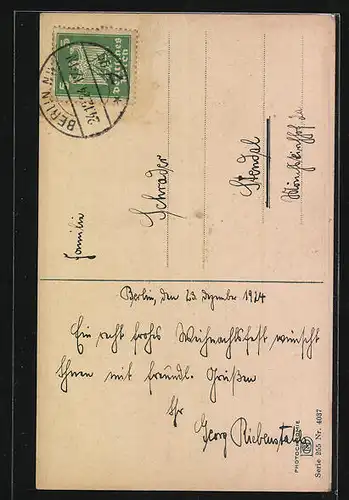 BERLIN N.W.
24.12.24
Deutsches Reich
5
5
Familie
Schrader
Stendal
Mönchskirchhof
Berlin, den 23. Dezember 1924
Ein recht frohes Weihnachtsfest wünscht
Ihnen mit freundl. Grüßen
Ihr
Georg Riebenstahl
PHOTOCHROMIE
Serie 255 Nr. 4037